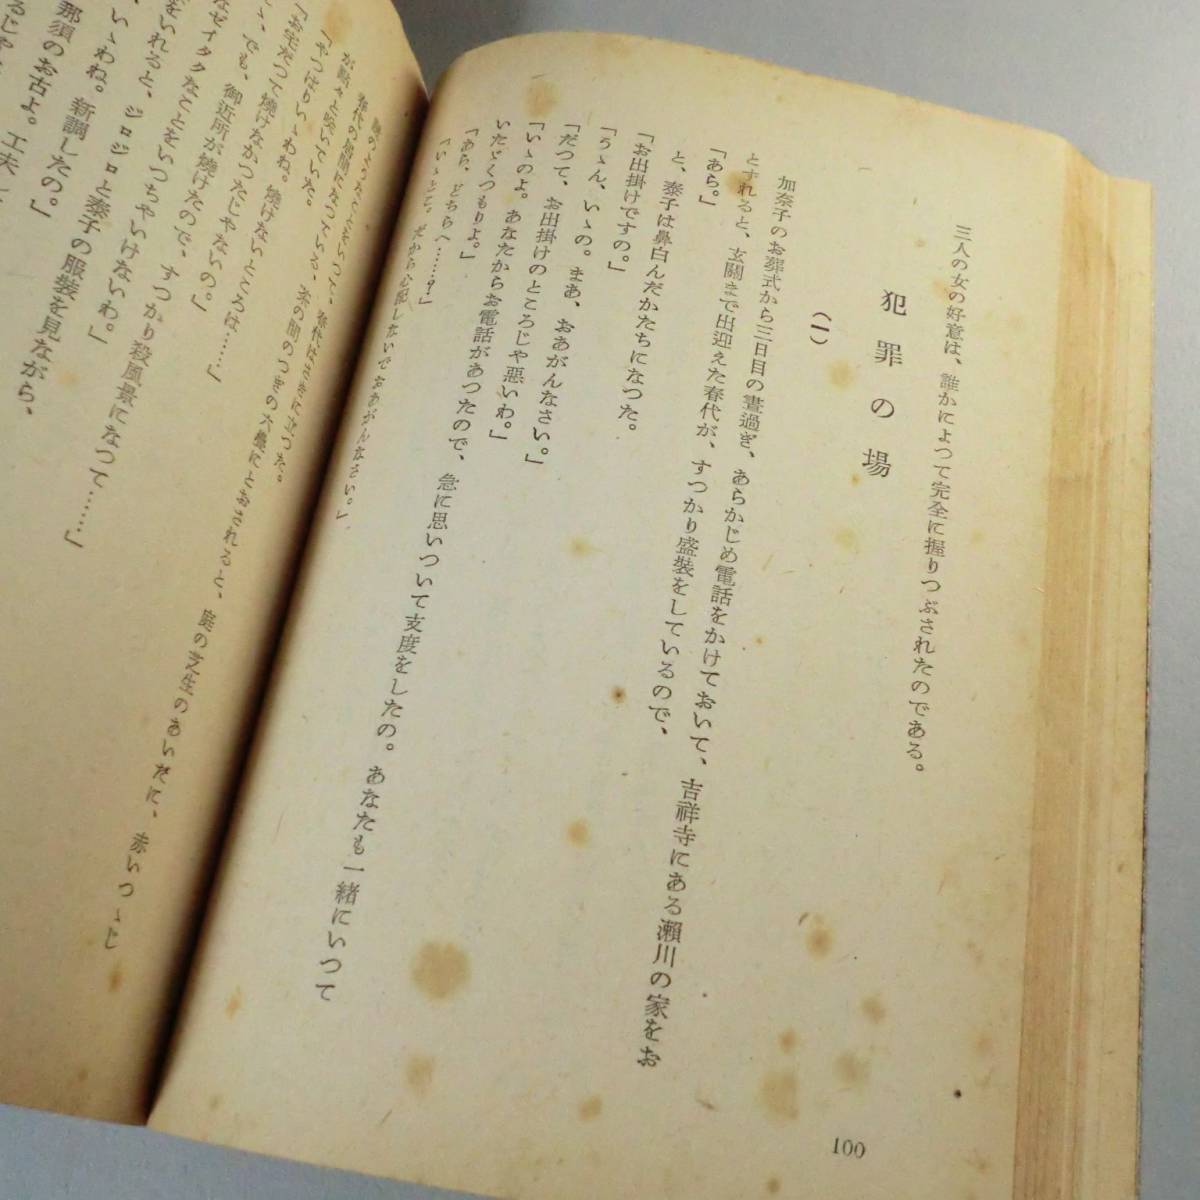 三人の女の好意は、誰かによつて完全に握りつぶされたのである。
犯罪の場
(一)
加奈子のお葬式から三日目の晝過ぎ、あらかじめ電話をかけておいて、吉祥寺にある瀬川の家をお
とずれると、玄關まで出迎えた春代が、すつかり盛裝をしているので、
「あら。」
と、泰子は鼻白んだかたちになつた。
「お出掛けですの。」
「うゝん、いゝの。まあ、おあがんなさい。」
「だつて、お出掛けのところじや惡いわ。」
「いゝのよ。あなたからお電話があつたので、急に思いついて支度をしたの。あなたも一緒にいつて
いたゞくつもりよ。」
「あら、どちらへ……？」
「いゝとこ。だから心配しないでおあがんなさい。」
100
のようなことをいつて、春代はさきに立つた。
春代の居間になつている、茶の間のつぎの六疊にとおされると、庭の芝生のあいだに、赤いつゝじ
が點々と咲いていた。
「やつぱりいゝわね。燒けないところは……」
「お宅だつて燒けなかつたじやないの。」
、でも、御近所が燒けたので、すつかり殺風景になつて……」
なゼイタクなことをいつちやいけないわ。」
をいれると、ジロジロと泰子の服裝を見ながら、
いゝわね。新調したの。」
那須のお古よ。工夫し
るじや